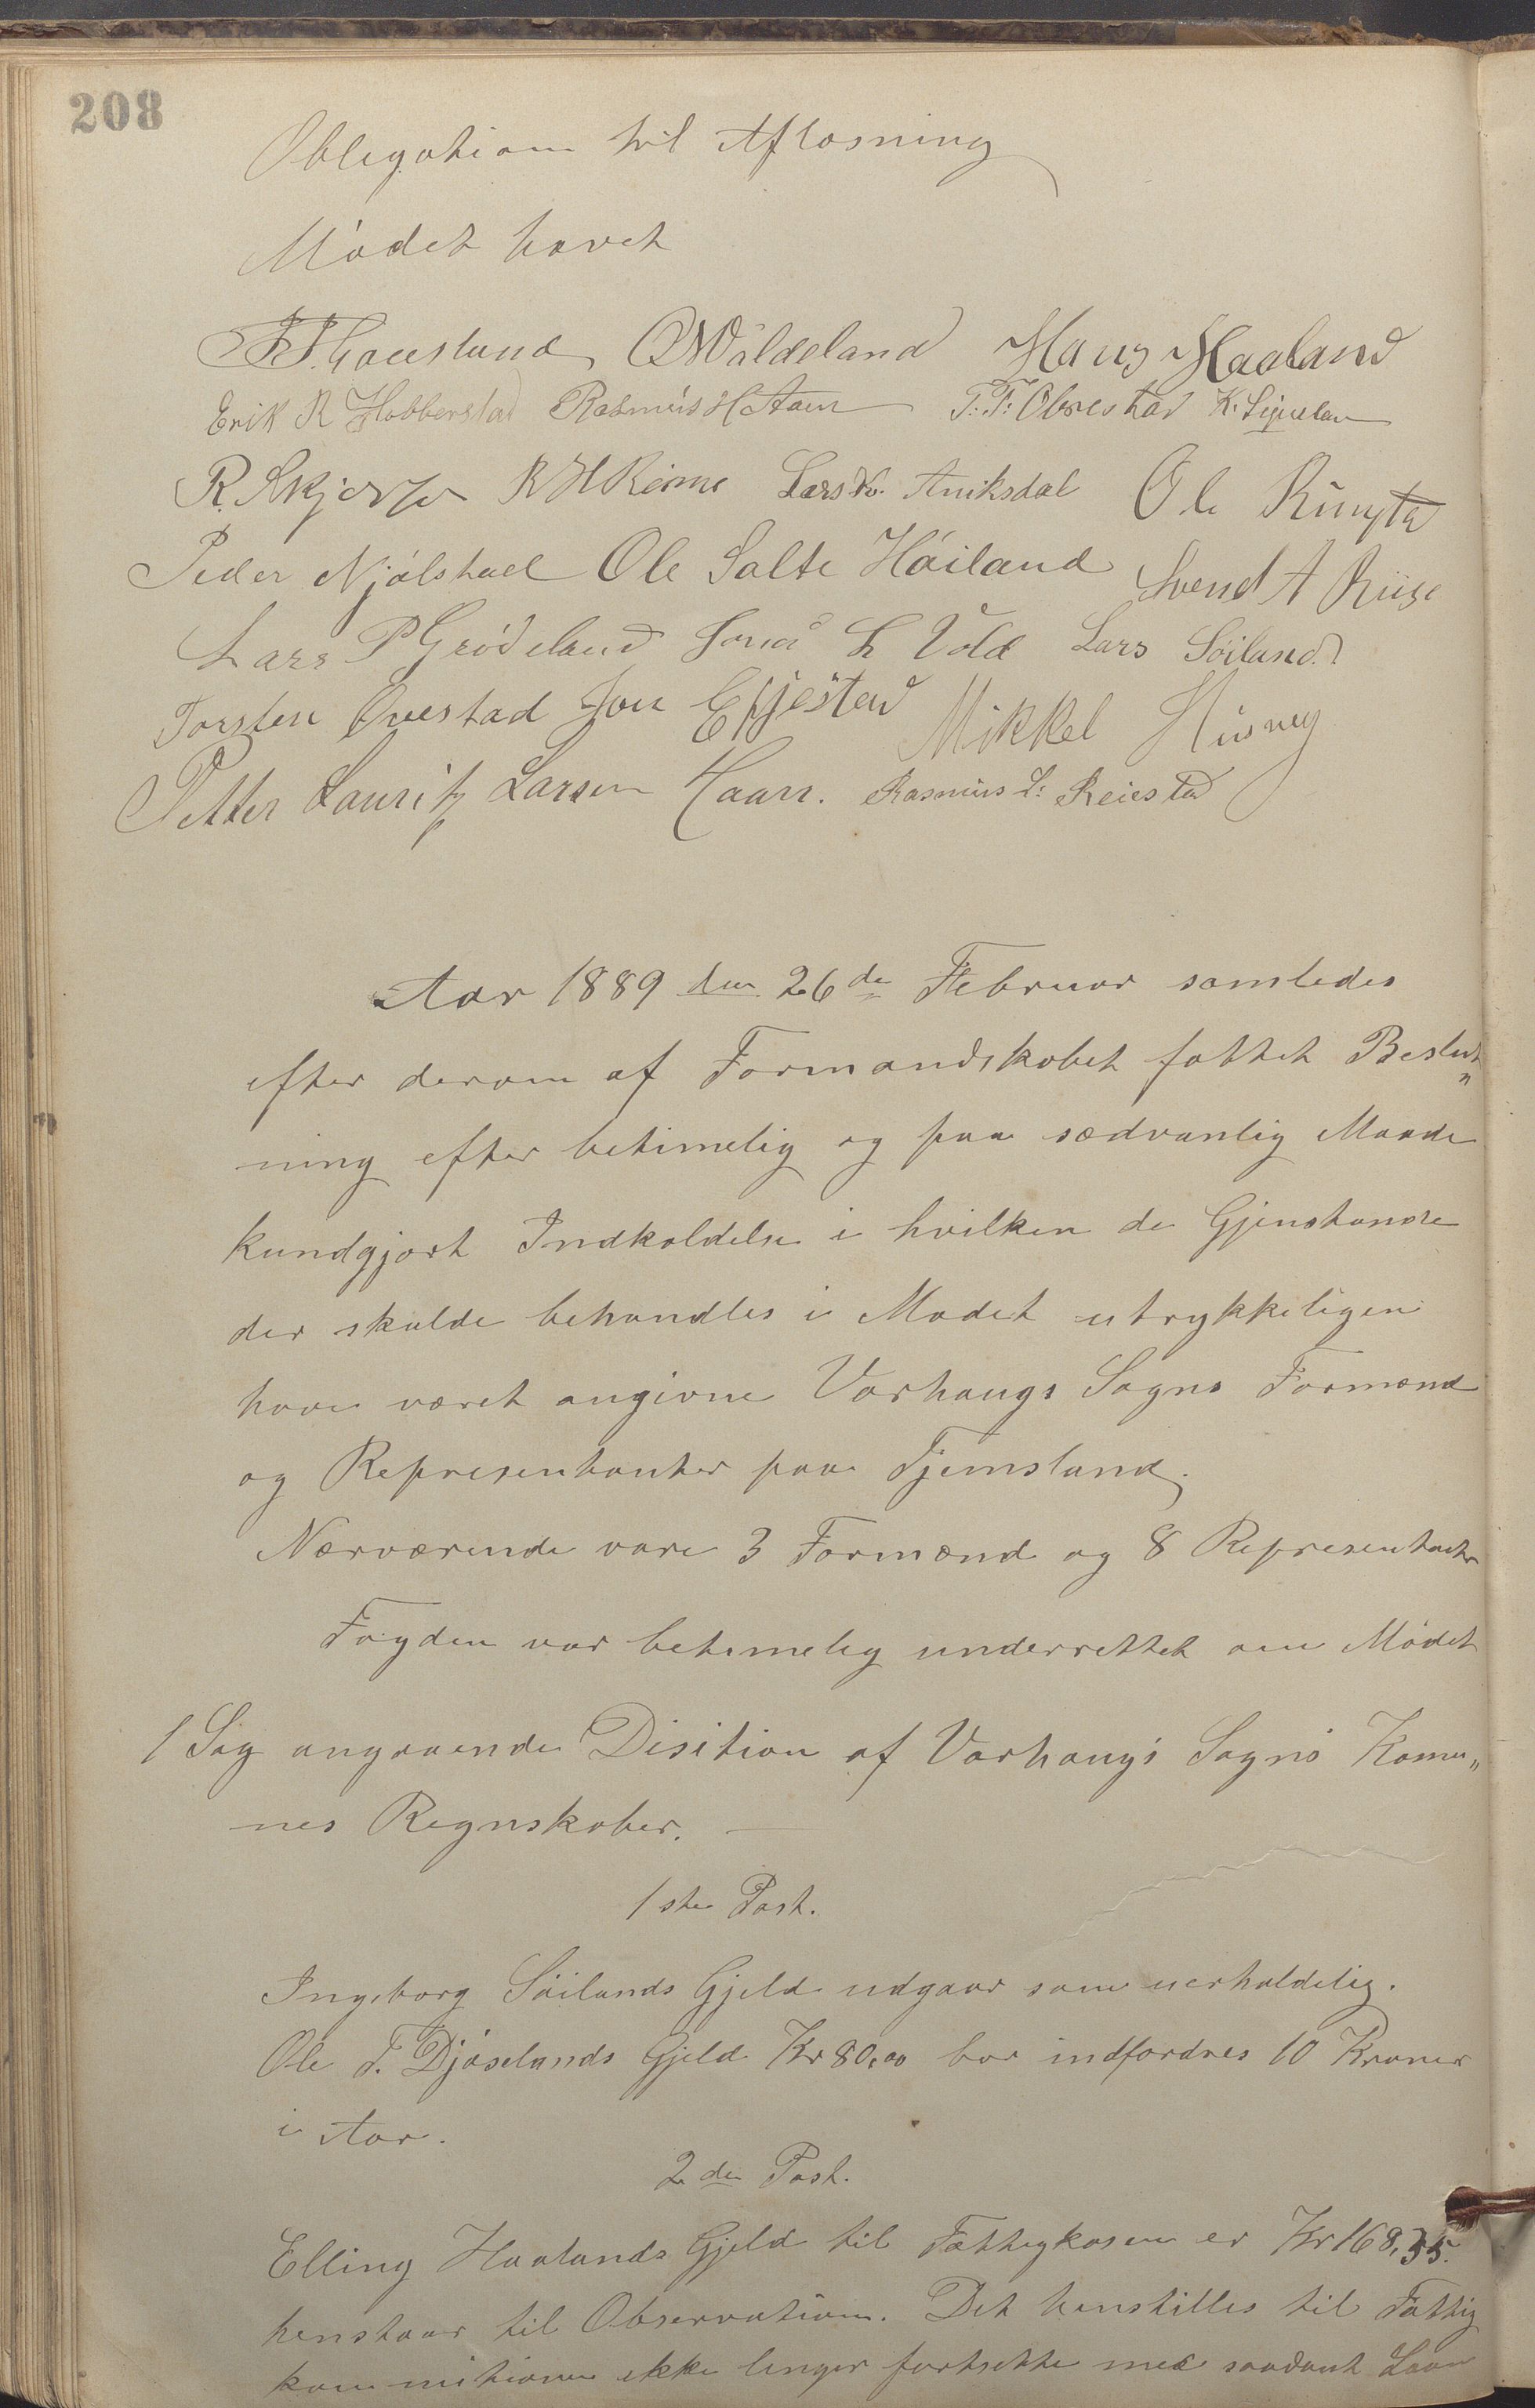 208
Obligation til Afløsning
Mødet hævet
Erik R Hobberstad Rasmus H Aam T. T. Obrestad
R. H. Reime Lars Aniksdal Ole
Peder Njålstad Ole Salte Höiland Svend A
Lars P Grödeland Jonas L Vold Lars Söiland
Torsten Ovestad Jon Mikkel
Petter Lauritz Larsen Haar. Rasmus L: Reiestad
Hans Haaland
Aar 1889 den 26de Februar samledes
efter derom af Formandskabet fattet Beslut„
ning efter betimelig og paa sædvanlig Maade
kundgjort Indkaldelse i hvilken de Gjenstande
der skulde behandles i Mødet utrykkeligen
have været angivne Varhaugs Sogns Formænd
og Representanter paa Tjemsland.
Nærværende vare 3 Formænd og 8 Representanter
Fogden var betimelig underrettet om Mødet
1 Sag angaaende Disition af Varhaug's Sogns Komu„
nes Regnskaber.
1ste Post.
Ingeborg Söilands Gjeld udgaar som uerholdelig.
Ole T. Djøselands Gjeld Kr 80,00 bør indfordres 10 Kroner
i Aar.
2den Post.
Elling Haalands Gjeld til Fattigkasen er Kr 168,35.
henstaar til Observation. Det henstilles til Fattig
kommitionen ikke lenger fortsette med saadant Laan